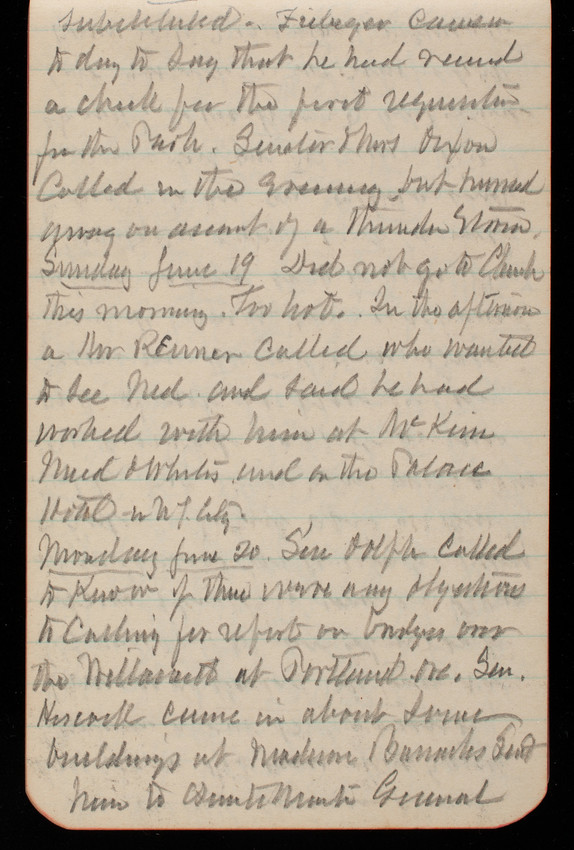 substituted. Fiebeger came in
to day to say that he had received
a check for the first requisition
for the Park. Senator & Mrs Dixon
Called in the Evening but hurried
away on account of a thunder Storm.
Sunday June 19 Did not go to Church
this morning. Too hot. In the afternoon
a Mr Renner Called who wanted
to see Ned and said he had
worked with him at McKim
Mead & Whites and on the Palace
Hotel in N.Y. City.
Monday June 20. Sen Dolph called
to Know if there were any objections
to Calling for report on bridges over
the Willamett at Portland Ore. Sen.
Hiscock came in about some
buildings at Madison Barracks Sent
him to Quartermaster General